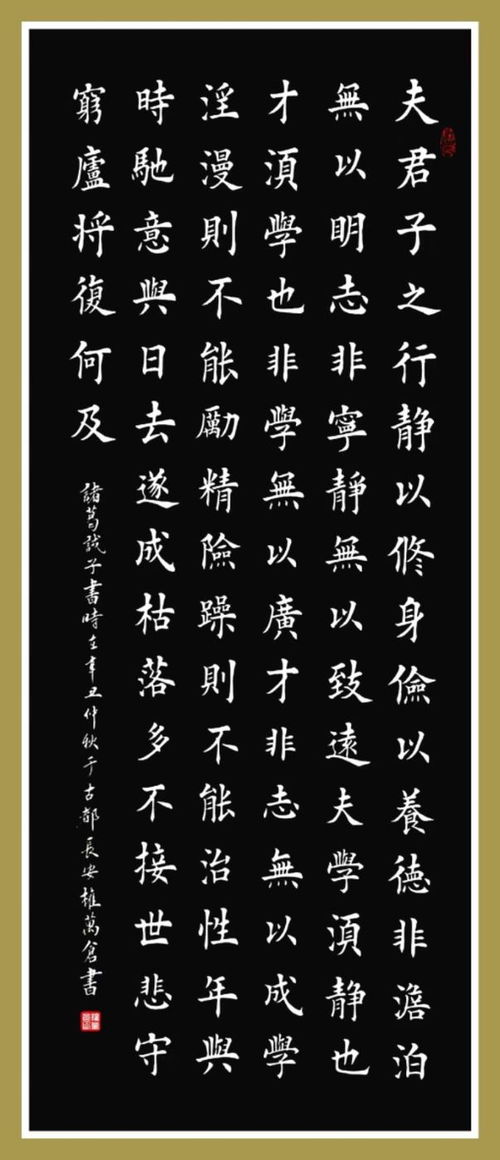 夫君子之行静以修身儉以養德非澹泊
無以明志非寧靜無以致遠夫學須静也
才須學也非學無以廣才非志無以成學
淫漫則不能勵精險躁則不能治性年與
時馳意與日去遂成枯落多不接世悲守
窮廬將復何及
諸葛誡子書時在辛丑仲秋于古都長安權萬倉書